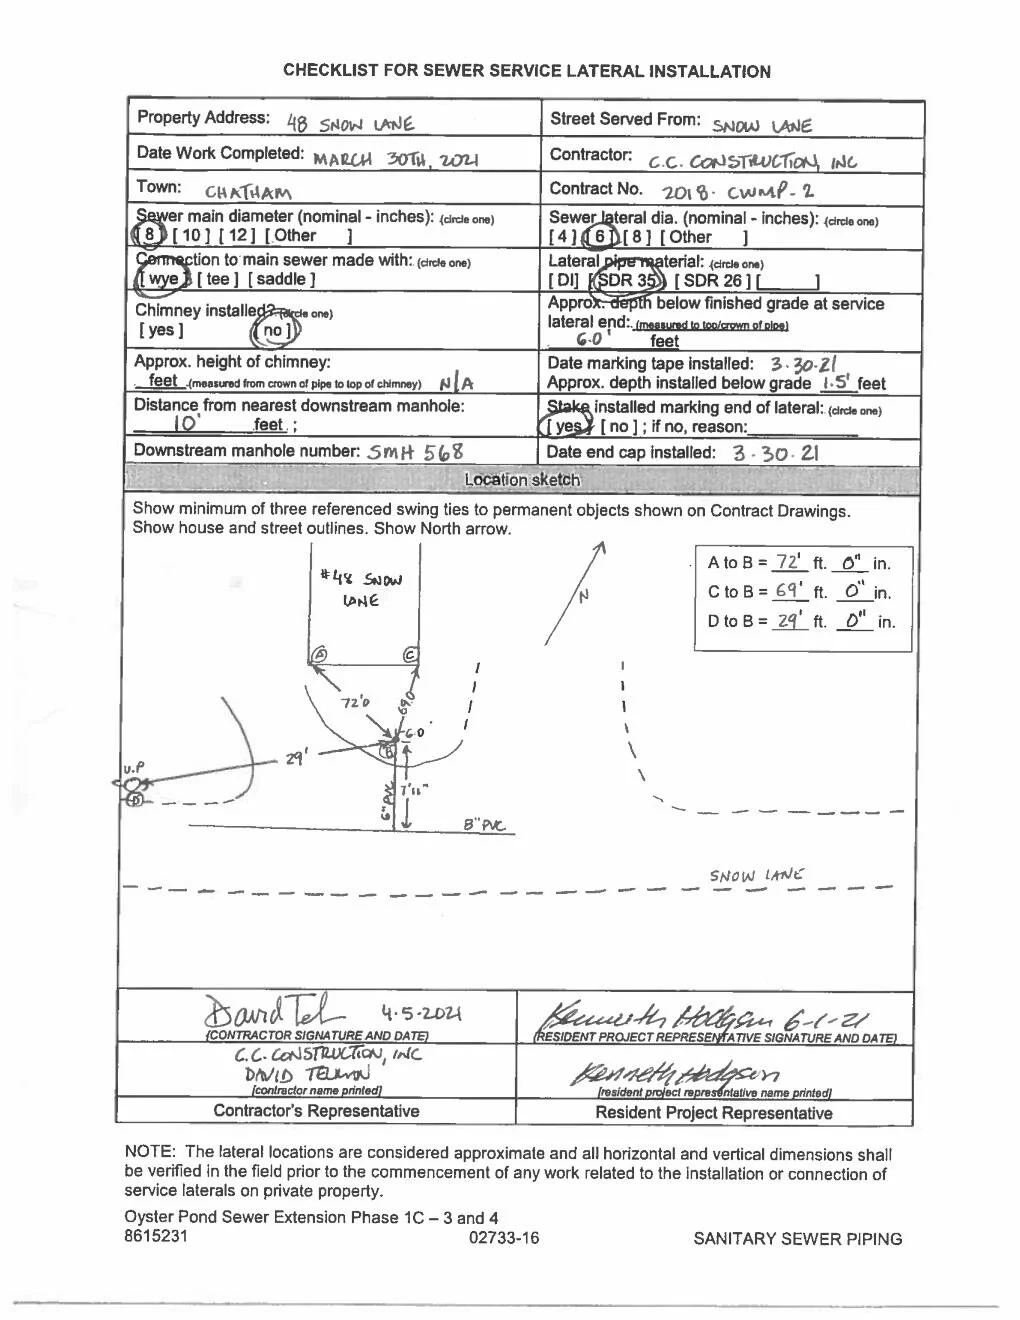 CHECKLIST FOR SEWER SERVICE LATERAL INSTALLATION
Property Address: 48 SNOW LANE
Street Served From: SNOW LANE
Date Work Completed: MARCH 30TH, 2021
Contractor: C.C. CONSTRUCTION, INC
Town: CHATHAM
Contract No. 2018- CWMP-2
Sewer main diameter (nominal - inches): (circle one)
[ 8 ] [ 10 ] [ 12 ] [ Other ]
Sewer lateral dia. (nominal - inches): (circle one)
[ 4 ] [ 6 ] [ 8 ] [ Other ]
Connection to main sewer made with: (circle one)
[ wye ] [ tee ] [ saddle ]
Lateral pipe material: (circle one)
[ DI] [ SDR 35 ] [ SDR 26 ] [ ]
Chimney installed? (circle one)
[ yes ] [ no ]
Approx. depth below finished grade at service
lateral end: (measured to top/crown of pipe)
6.0' feet
Approx. height of chimney:
feet (measured from crown of pipe to top of chimney) N/A
Date marking tape installed: 3-30-21
Approx. depth installed below grade 1.5' feet
Distance from nearest downstream manhole:
10' feet ;
Stake installed marking end of lateral: (circle one)
[ yes ] [ no ] ; if no, reason:
Downstream manhole number: SMH 568
Date end cap installed: 3-30-21
Location sketch
Show minimum of three referenced swing ties to permanent objects shown on Contract Drawings.
Show house and street outlines. Show North arrow.
#48 SNOW
LANE
N
A to B = 72' ft. 0" in.
C to B = 69' ft. 0" in.
D to B = 29' ft. 0" in.
A
C
72'0
69.0
6.0'
B
29'
U.P
D
6" PVC
7'11"
8" PVC
SNOW LANE
4-5-2021
6-1-21
(CONTRACTOR SIGNATURE AND DATE)
(RESIDENT PROJECT REPRESENTATIVE SIGNATURE AND DATE)
C.C. CONSTRUCTION, INC
DAVID
Kenneth Hodgson
[contractor name printed]
[resident project representative name printed]
Contractor's Representative
Resident Project Representative
NOTE: The lateral locations are considered approximate and all horizontal and vertical dimensions shall
be verified in the field prior to the commencement of any work related to the installation or connection of
service laterals on private property.
Oyster Pond Sewer Extension Phase 1C – 3 and 4
8615231
02733-16
SANITARY SEWER PIPING